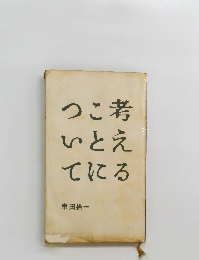 考える
ことに
ついて
串田孫一